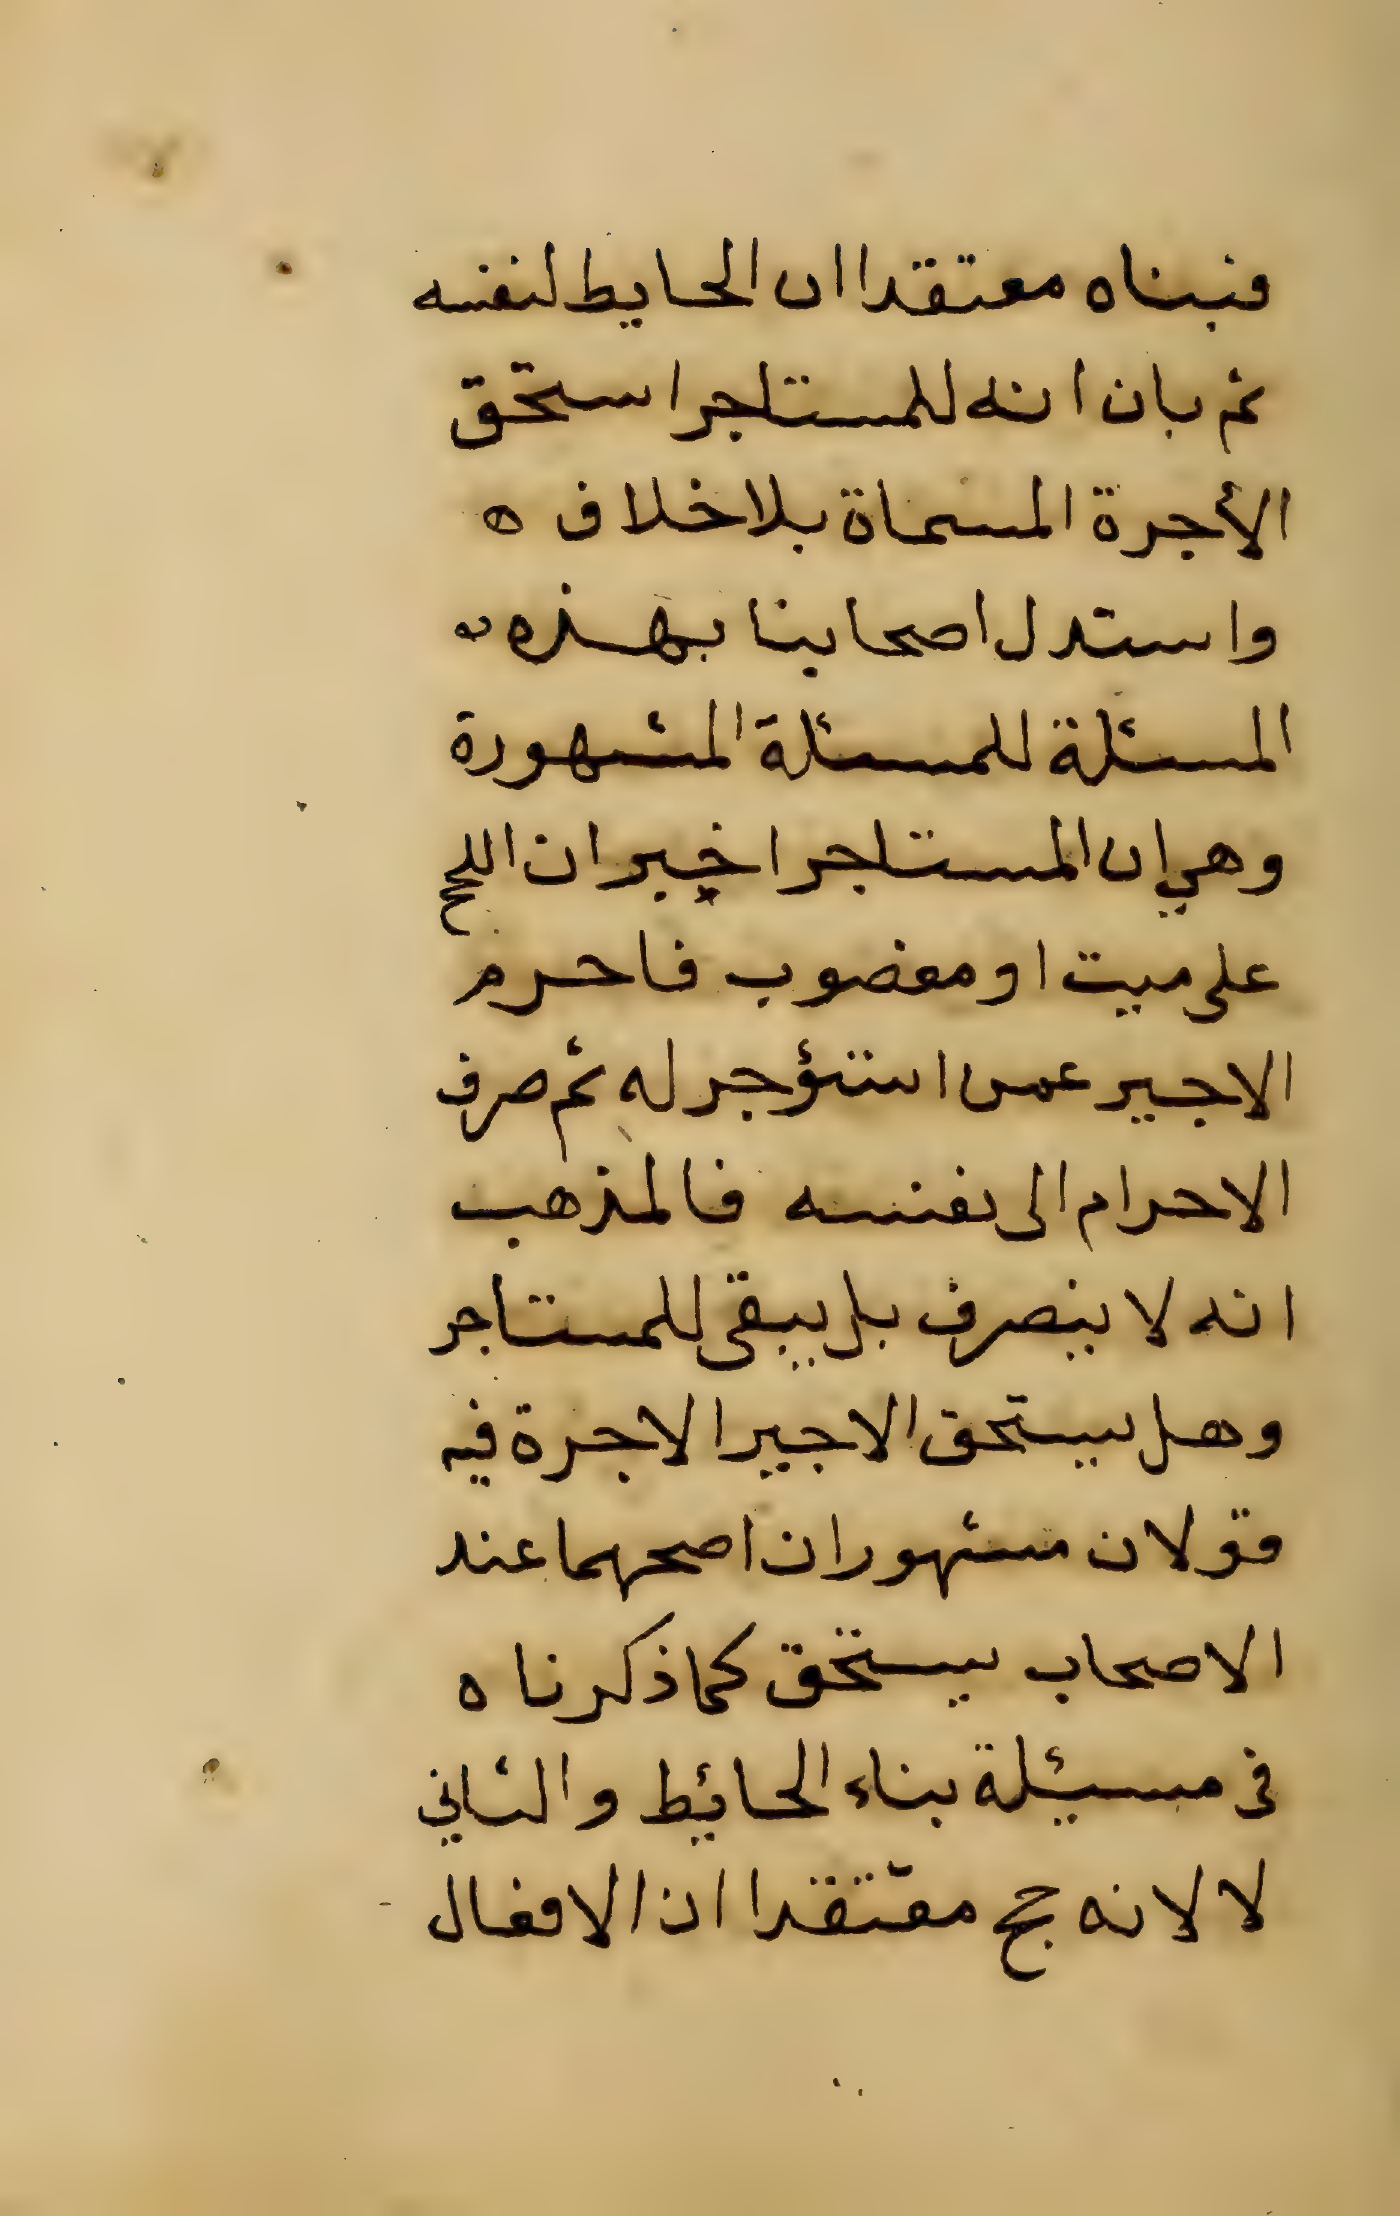 فبناه معتقدا ان الحايط لنفسه
ثم بان انه للمستاجر استحق
الأجرة المسماة بلا خلاف ه
واستدل اصحابنا بهذه
المسئلة للمسئلة المشهورة
وهي ان المستاجر اخبر ان اللحج
على ميت او معضوب فاحرم
الاجير عمن استؤجر له ثم صرف
الاحرام الى نفسه فالمذهب
انه لا ينصرف بل يبقى للمستاجر
وهل يستحق الاجير الاجرة فيه
قولان مشهوران اصحهما عند
الاصحاب يستحق كما ذكرناه
في مسئلة بناء الحائط والثاني
لا لانه حج معتقدا ان الافعال